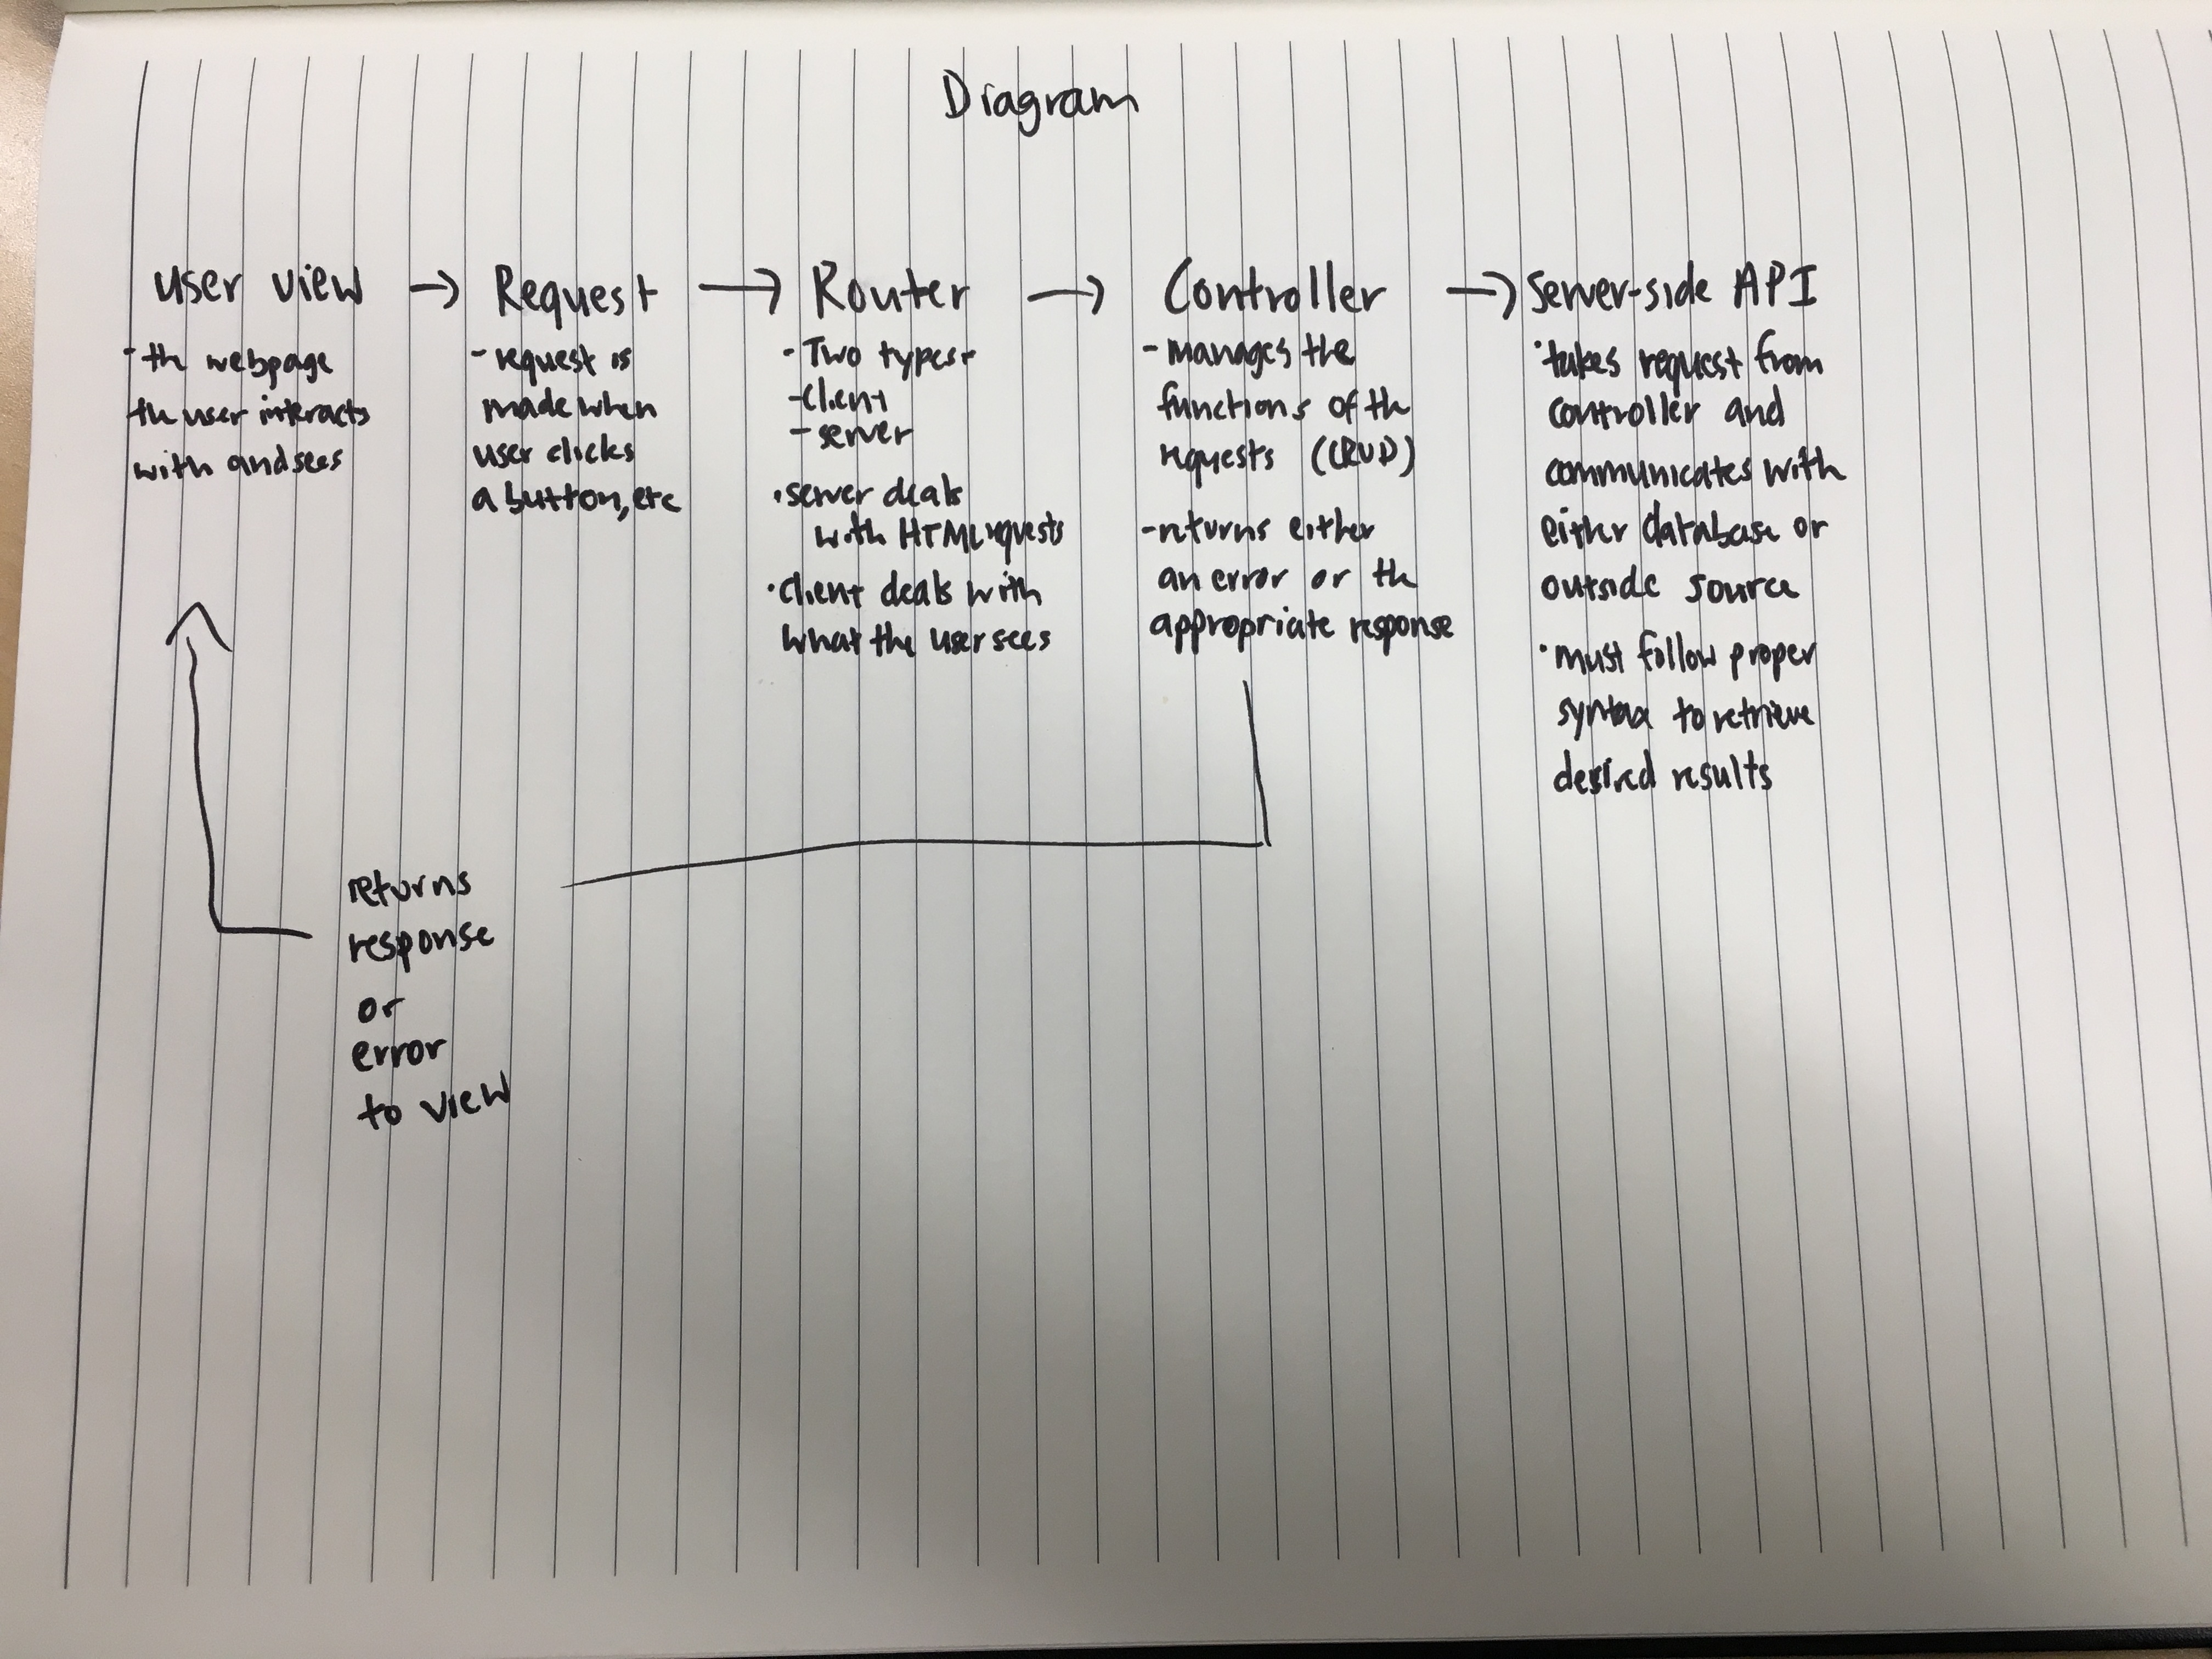 Diagram
User View → Request → Router → Controller → Server-side API
· the webpage
the user interacts
with and sees
- request is
made when
user clicks
a button, etc
· Two types
- client
- server
· server deals
with HTML requests
· client deals with
what the user sees
- manages the
functions of the
requests (CRUD)
- returns either
an error or the
appropriate response
· takes request from
controller and
communicates with
either database or
outside source
· must follow proper
syntax to retrieve
desired results
returns
response
or
error
to view